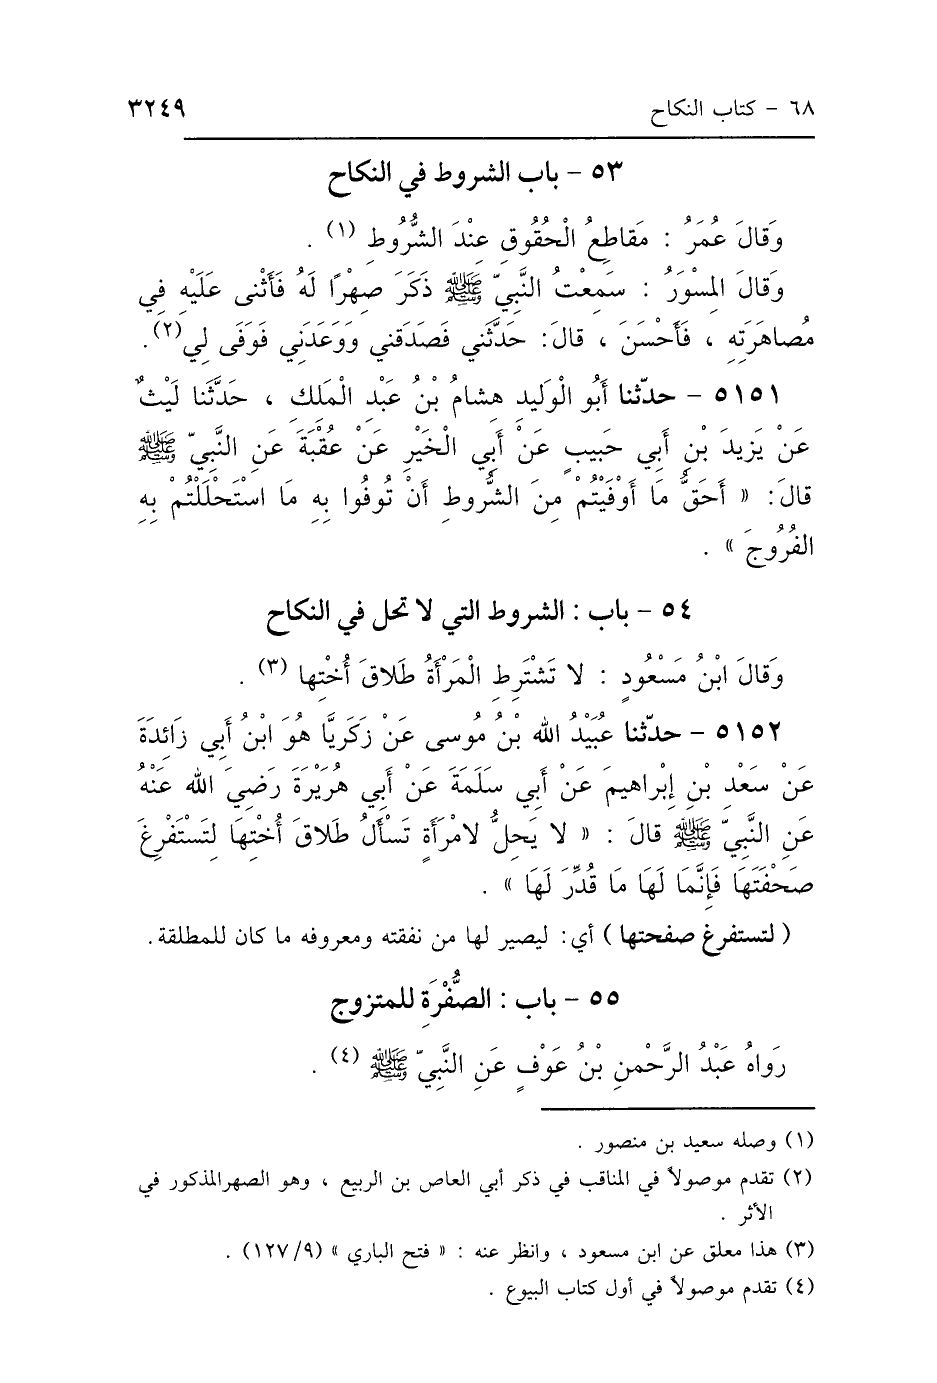 ٦٨ - كتاب النكاح ٣٢٤٩
٥٣ - باب الشروط في النكاح
وَقالَ عُمَرُ : مَقاطِعُ الْحُقُوقِ عِنْدَ الشُّرُوطِ (١) .
وَقالَ المِسْوَرُ : سَمِعْتُ النَّبِيَّ ﷺ ذَكَرَ صِهْرًا لَهُ فَأَثْنى عَلَيْهِ فِي
مُصاهَرَتِهِ ، فَأَحْسَنَ ، قالَ: حَدَّثَنِي فَصَدَقَنِي وَوَعَدَنِي فَوَفَى لِي(٢).
٥١٥١ - حدّثنا أَبُو الْوَلِيدِ هِشامُ بْنُ عَبْدِ الْمَلِكِ ، حَدَّثَنا لَيْثٌ
عَنْ يَزِيدَ بْنِ أَبِي حَبِيبٍ عَنْ أَبِي الْخَيْرِ عَنْ عُقْبَةَ عَنِ النَّبِيِّ ﷺ
قالَ: « أَحَقُّ مَا أَوْفَيْتُمْ مِنَ الشُّرُوطِ أَنْ تُوفُوا بِهِ مَا اسْتَحْلَلْتُمْ بِهِ
الفُرُوجَ » .
٥٤ - باب : الشروط التي لا تحل في النكاح
وَقالَ ابْنُ مَسْعُودٍ : لا تَشْتَرِطِ الْمَرْأَةُ طَلاقَ أُخْتِها (٣) .
٥١٥٢ - حدّثنا عُبَيْدُ الله بْنُ مُوسى عَنْ زَكَرِيَّا هُوَ ابْنُ أَبِي زَائِدَةَ
عَنْ سَعْدِ بْنِ إِبْراهِيمَ عَنْ أَبِي سَلَمَةَ عَنْ أَبِي هُرَيْرَةَ رَضِيَ الله عَنْهُ
عَنِ النَّبِيِّ ﷺ قالَ : « لا يَحِلُّ لامْرَأَةٍ تَسْأَلُ طَلاقَ أُخْتِهَا لِتَسْتَفْرِغَ
صَحْفَتَهَا فَإِنَّمَا لَهَا مَا قُدِّرَ لَهَا » .
( لتستفرغ صفحتها ) أي: ليصير لها من نفقته ومعروفه ما كان للمطلقة.
٥٥ - باب : الصُّفْرَةِ للمتزوج
رَواهُ عَبْدُ الرَّحْمنِ بْنُ عَوْفٍ عَنِ النَّبِيِّ ﷺ (٤) .
(١) وصله سعيد بن منصور .
(٢) تقدم موصولاً في المناقب في ذكر أبي العاص بن الربيع ، وهو الصهرالمذكور في
الأثر .
(٣) هذا معلق عن ابن مسعود ، وانظر عنه : « فتح الباري » (١٢٧/٩) .
(٤) تقدم موصولاً في أول كتاب البيوع .